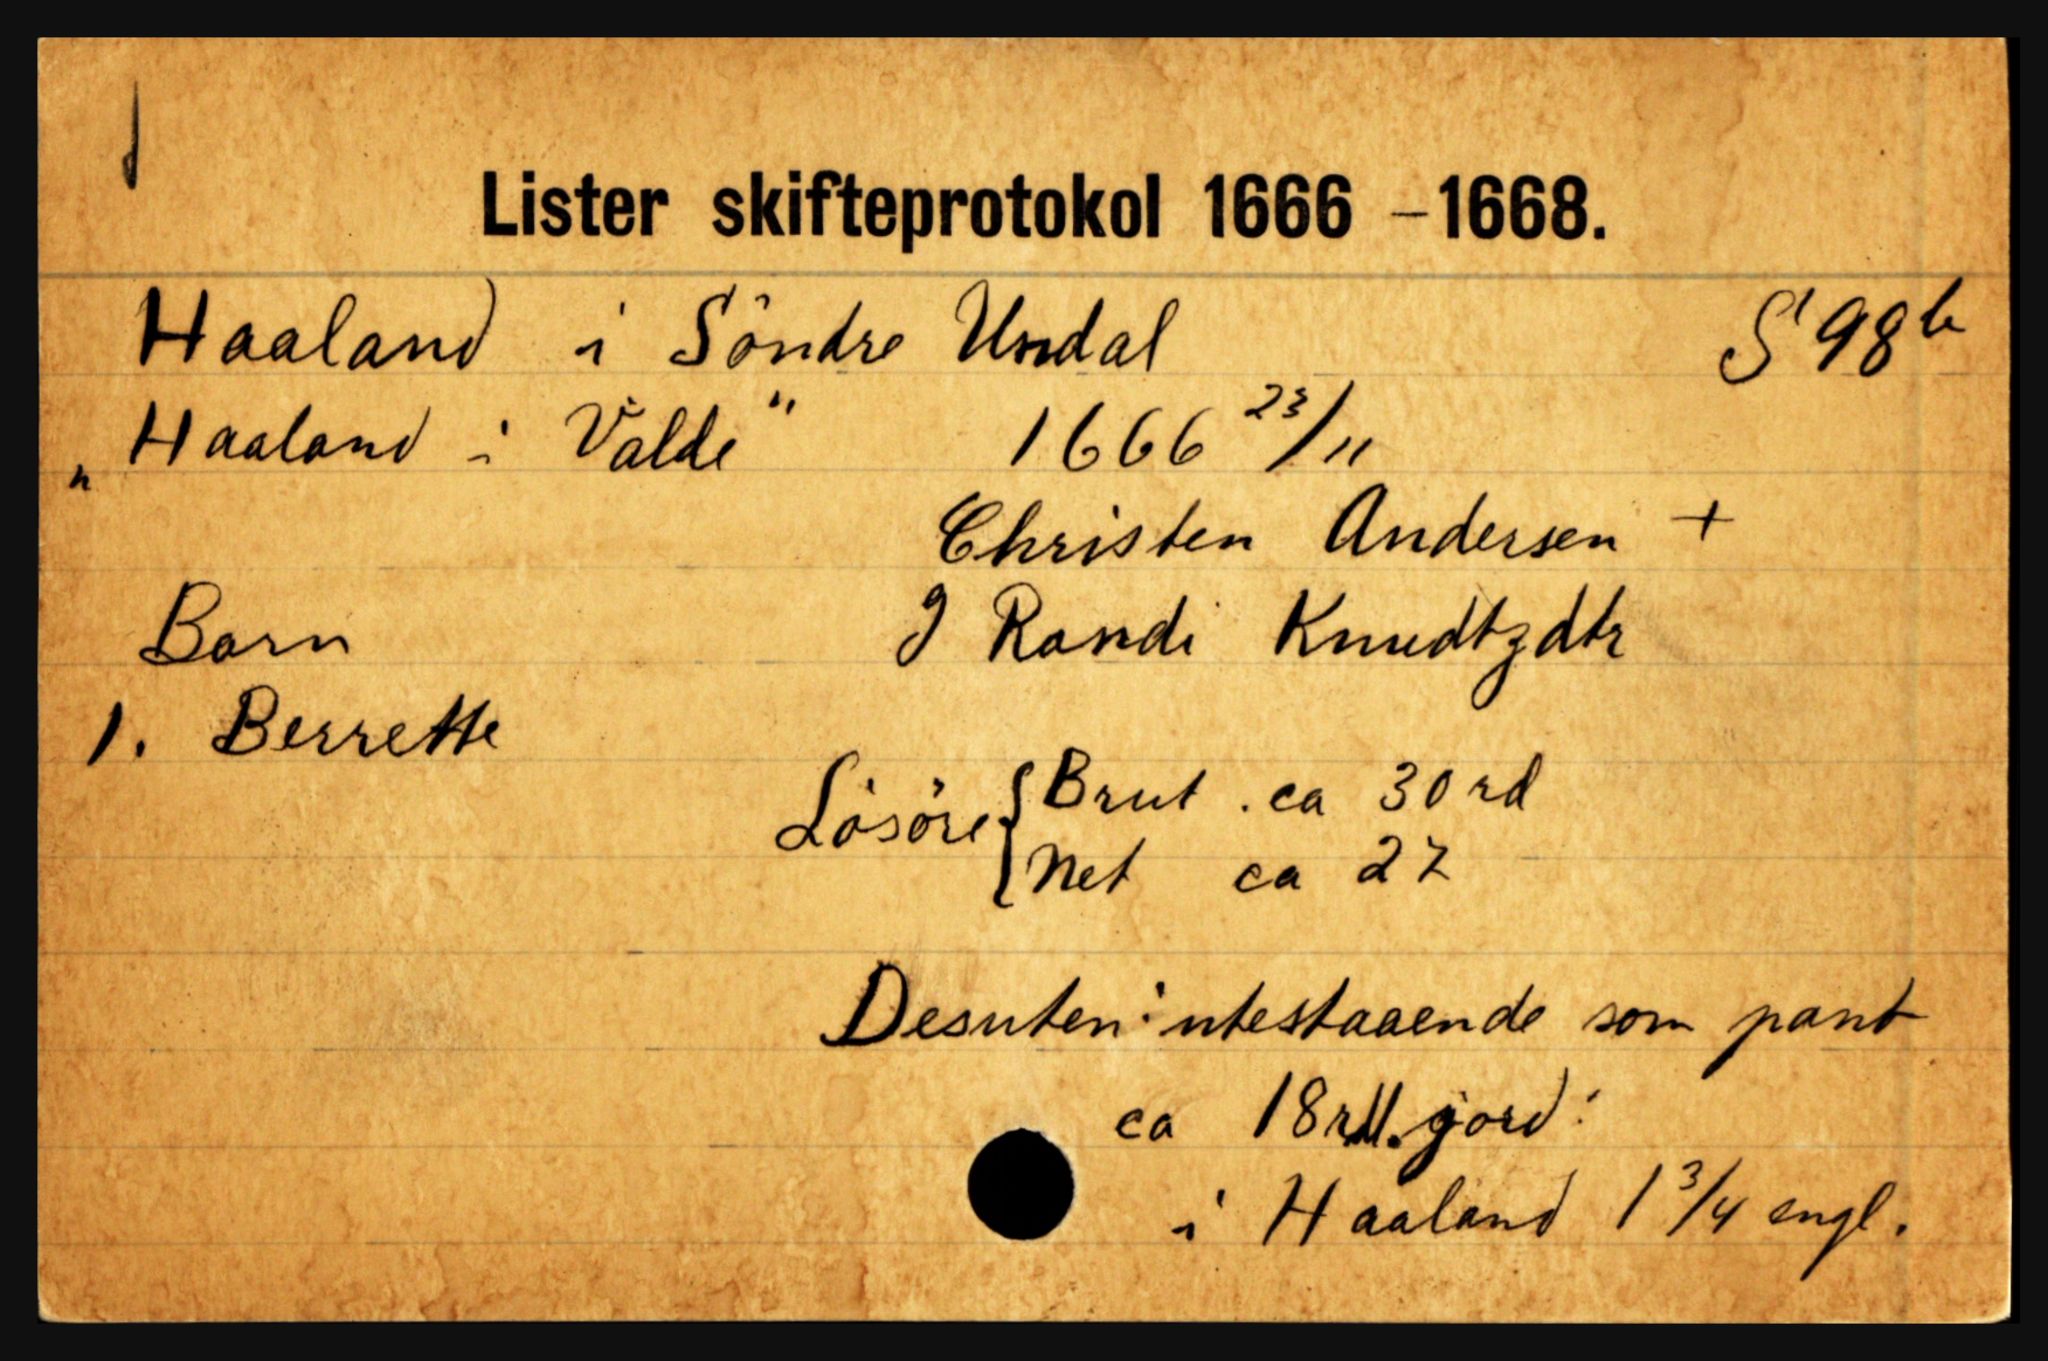 Lister skifteprotokol 1666 - 1668.
Haaland i Söndre Undal S 98 b
"Haaland i Valde" 1666 23/11
Christen Andersen +
Barn G Randi Knudtzdtr
1. Berrette
Lösöre { Brut. ca 30 rd
Net ca 27
Desuten: utestaaende som pant
ca 18 rdl. jord:
i Haaland 1 3/4 engl.